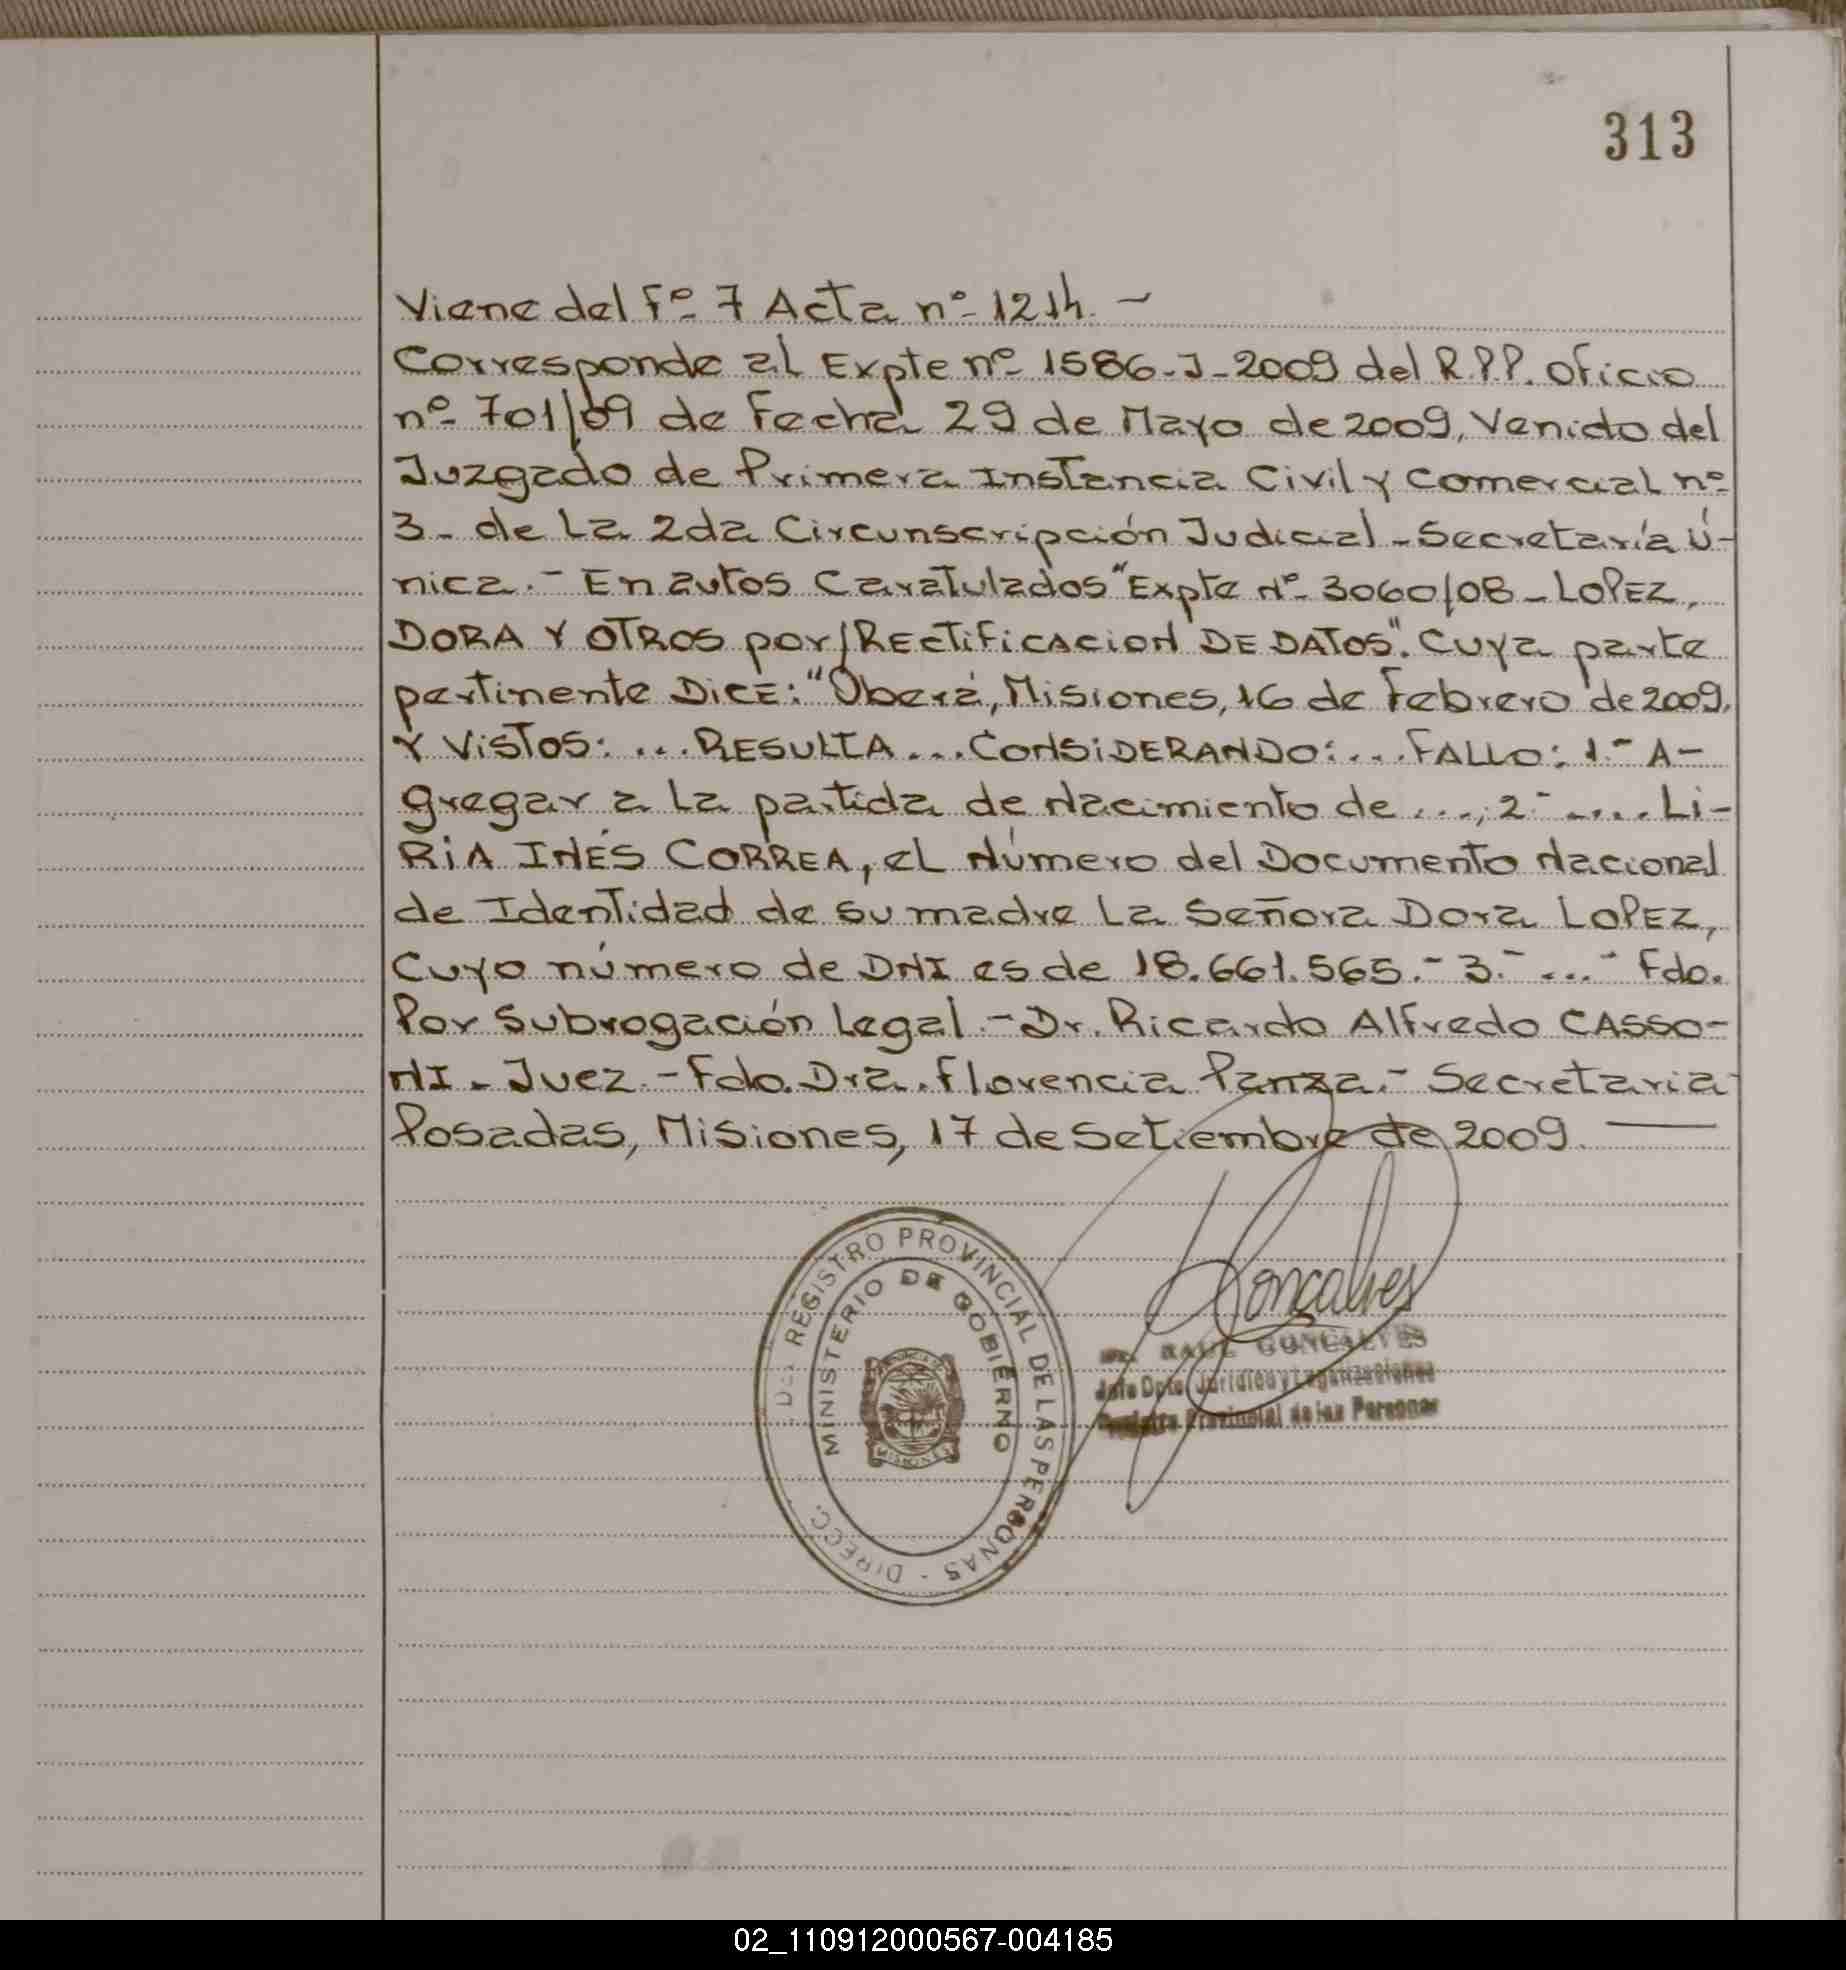 313
Viene del Fº 7 Acta nº 1214. -
Corresponde al Expte nº 1586-J-2009 del R.P.P. Oficio
nº 701/09 de Fecha 29 de Mayo de 2009, Venido del
Juzgado de Primera Instancia Civil y Comercial nº
3- de La 2da Circunscripción Judicial - Secretaría Ú-
nica.- En autos Caratulados "Expte Nº 3060/08 - LOPEZ,
DORA Y OTROS por/RECTIFICACION DE DATOS". Cuya parte
pertinente DICE: "Oberá, Misiones, 16 de Febrero de 2009,
Y VISTOS: ... RESULTA ... CONSIDERANDO: ... FALLO: 1.- A-
gregar a La partida de Nacimiento de ..., 2- .... Li-
RiA INÉS CORREA, el Número del Documento Nacional
de Identidad de su madre La Señora Dora LOPEZ,
Cuyo número de DNI es de 18.661.565.- 3.- ...- Fdo.
Por Subrogación Legal.- Dr. Ricardo Alfredo CASSO-
NI - Juez.- Fdo. Dra. Florencia Panza.- Secretaria-
Posadas, Misiones, 17 de Setiembre de 2009.
DIRECC. REGISTRO PROVINCIAL DE LAS PERSONAS -
MINISTERIO DE GOBIERNO
MISIONES
Goncalves
RAUL GONCALVES
Jefe Dpto. Jurídico y Legalizaciones
Registro Provincial de las Personas
02_110912000567-004185